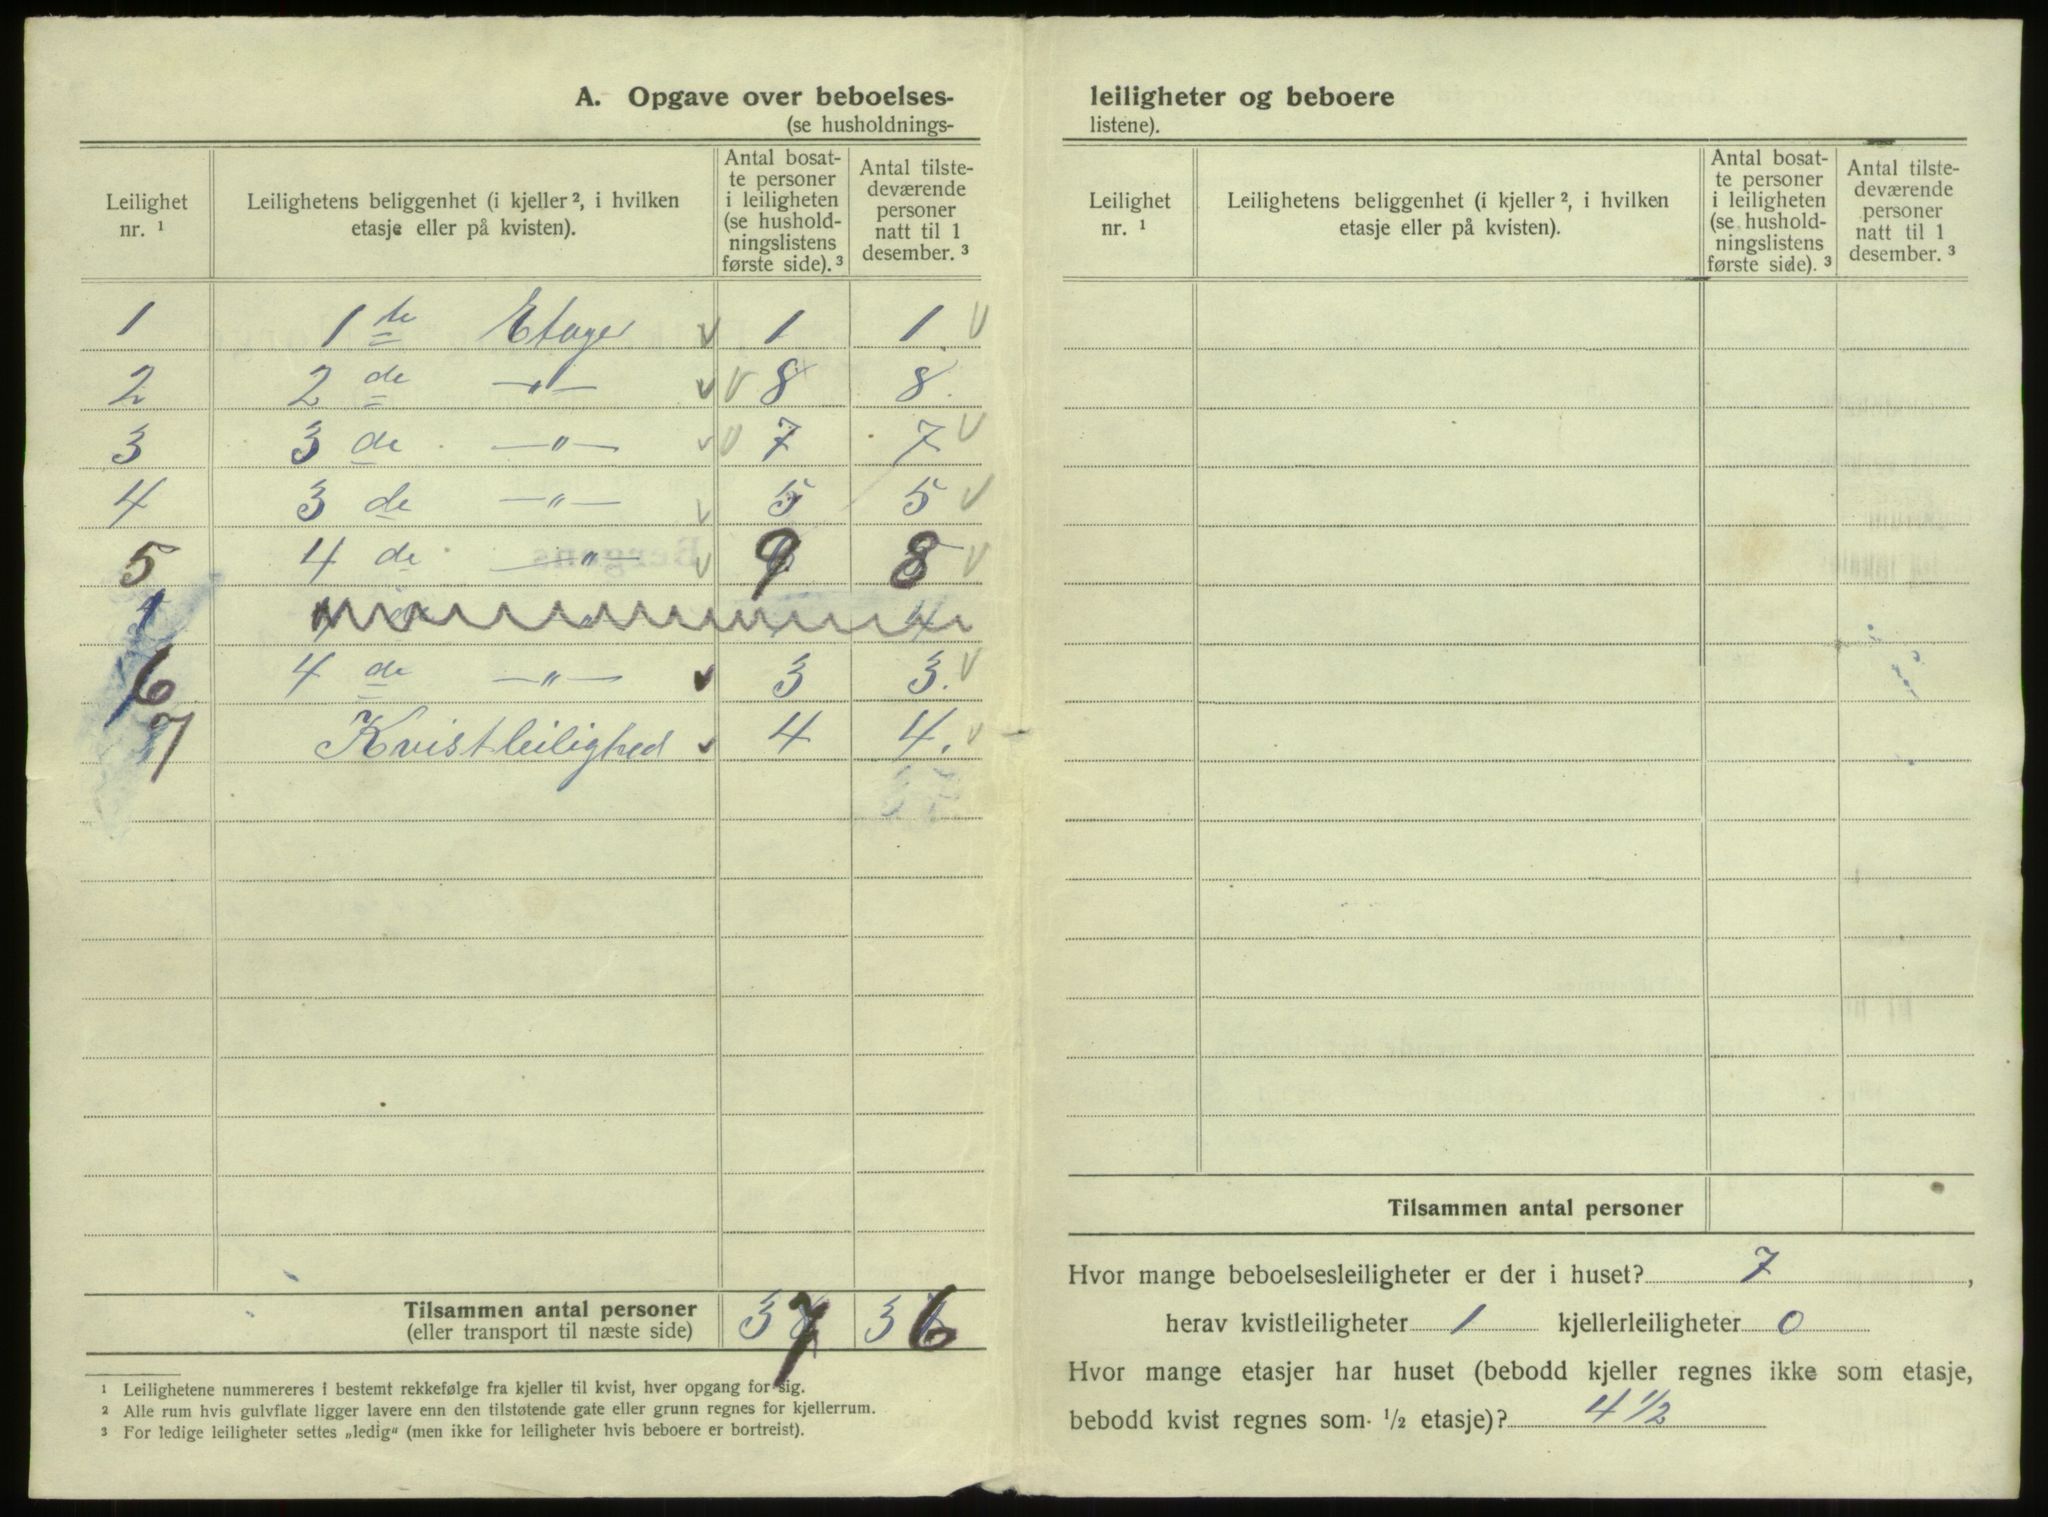 A. Opgave over beboelses-
(se husholdnings-
Leilighet nr. ¹
Leilighetens beliggenhet (i kjeller ², i hvilken etasje eller på kvisten).
Antal bosat-
te personer
i leiligheten
(se hushold-
ningslistens
første side). ³
Antal tilste-
deværende
personer
natt til 1
desember. ³
1 1 te Etage v 1 1. v
2 2 de —„— v v 8 8.
3 3 de —„— v v 7 7 v
4 3 de —„— v 5 5 v
5 4 de —„— v 9 8 v
4
6 4 de —„— v 3 3. v
7 Kvistleilighed v 4 4. v
Tilsammen antal personer 37 36
(eller transport til næste side)
¹ Leilighetene nummereres i bestemt rekkefølge fra kjeller til kvist, hver opgang for sig.
² Alle rum hvis gulvflate ligger lavere enn den tilstøtende gate eller grunn regnes for kjellerrum.
³ For ledige leiligheter settes „ledig“ (men ikke for leiligheter hvis beboere er bortreist).
leiligheter og beboere
listene).
Leilighet nr. ¹
Leilighetens beliggenhet (i kjeller ², i hvilken etasje eller på kvisten).
Antal bosat-
te personer
i leiligheten
(se hushold-
ningslistens
første side). ³
Antal tilste-
deværende
personer
natt til 1
desember. ³
Tilsammen antal personer
Hvor mange beboelsesleiligheter er der i huset? 7 ,
herav kvistleiligheter 1 kjellerleiligheter 0
Hvor mange etasjer har huset (bebodd kjeller regnes ikke som etasje,
bebodd kvist regnes som ½ etasje)? 4 ½